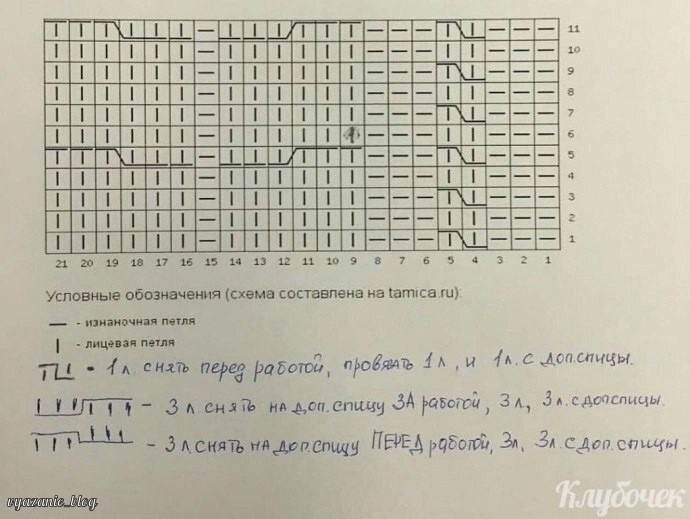 11
10
9
8
7
6
5
4
3
2
1
21 20 19 18 17 16 15 14 13 12 11 10 9 8 7 6 5 4 3 2 1
Условные обозначения (схема составлена на tamica.ru):
— - изнаночная петля
| - лицевая петля
- 1 л. снять перед работой, провязать 1 л, и 1 л. с доп. спицы.
- 3 л снять на доп. спицу ЗА работой, 3 л, 3 л. с доп спицы.
- 3 л. снять на доп. спицу ПЕРЕД работой, 3 л, 3 л. с доп. спицы.
vyazanie_blog
Клубочек